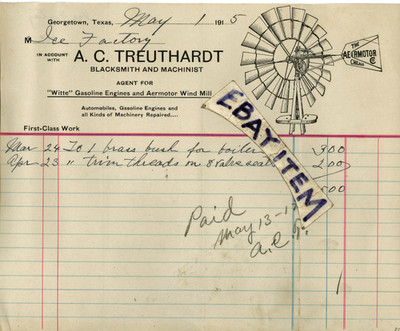 Georgetown, Texas, May 1 1915
M Ice Factory
IN ACCOUNT WITH A. C. TREUTHARDT
BLACKSMITH AND MACHINIST
AGENT FOR
"Witte" Gasoline Engines and Aermotor Wind Mill
Automobiles, Gasoline Engines and
all Kinds of Machinery Repaired....
THE
AERMOTOR
CHICAGO
First-Class Work
EBAY ITEM
Mar 24 To 1 brass bush for boiler 3.00
Apr 23 " trim threads on 8 valve seats 2.00
5.00
Paid
May 13-1
A.C.T.